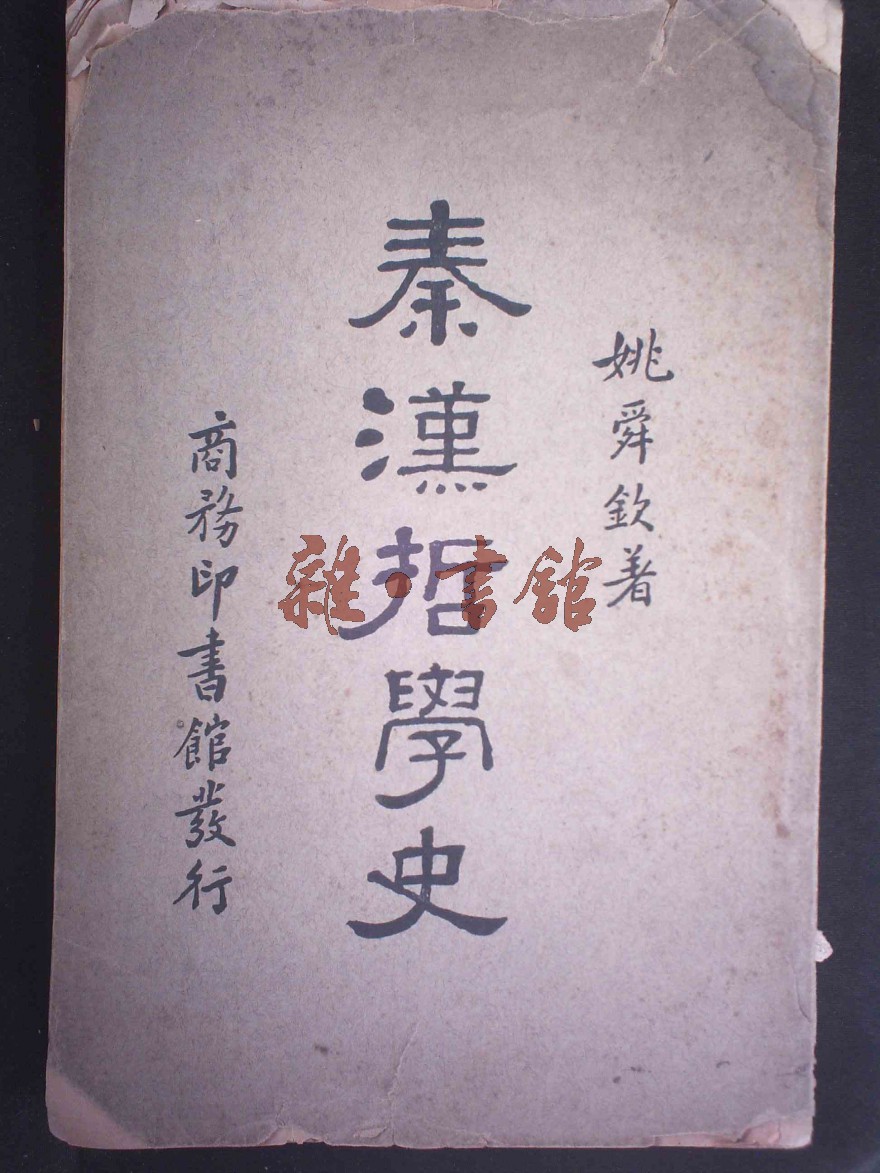 姚舜欽著
秦漢哲學史
商務印書館發行
雜·書館